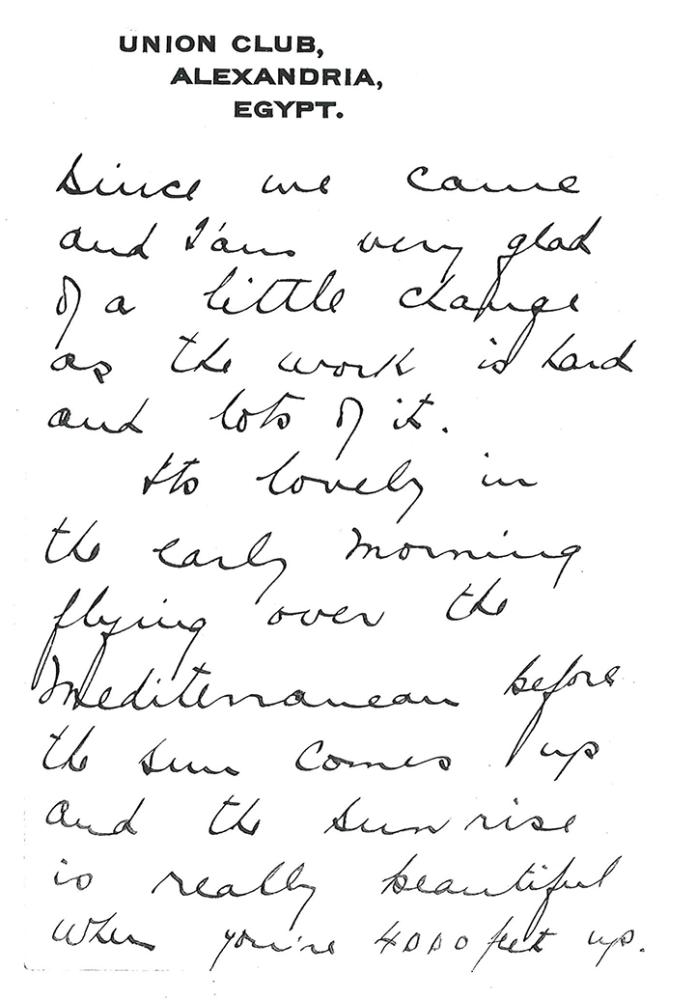 UNION CLUB,
ALEXANDRIA,
EGYPT.
since we came
and I'am very glad
of a little change
as the work is hard
and lots of it.
Its lovely in
the early morning
flying over the
Mediterranean before
the sun comes up
and the sunrise
is really beautiful
when you're 4000 feet up.